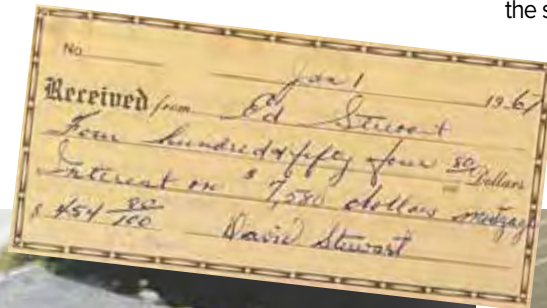 the s
No.
Jan 1 1967
Received from Ed Stewart
Four hundred & fifty four 80/100 Dollars
Interest on $ 7,580 dollars mortgage
$ 454 80/100 David Stewart